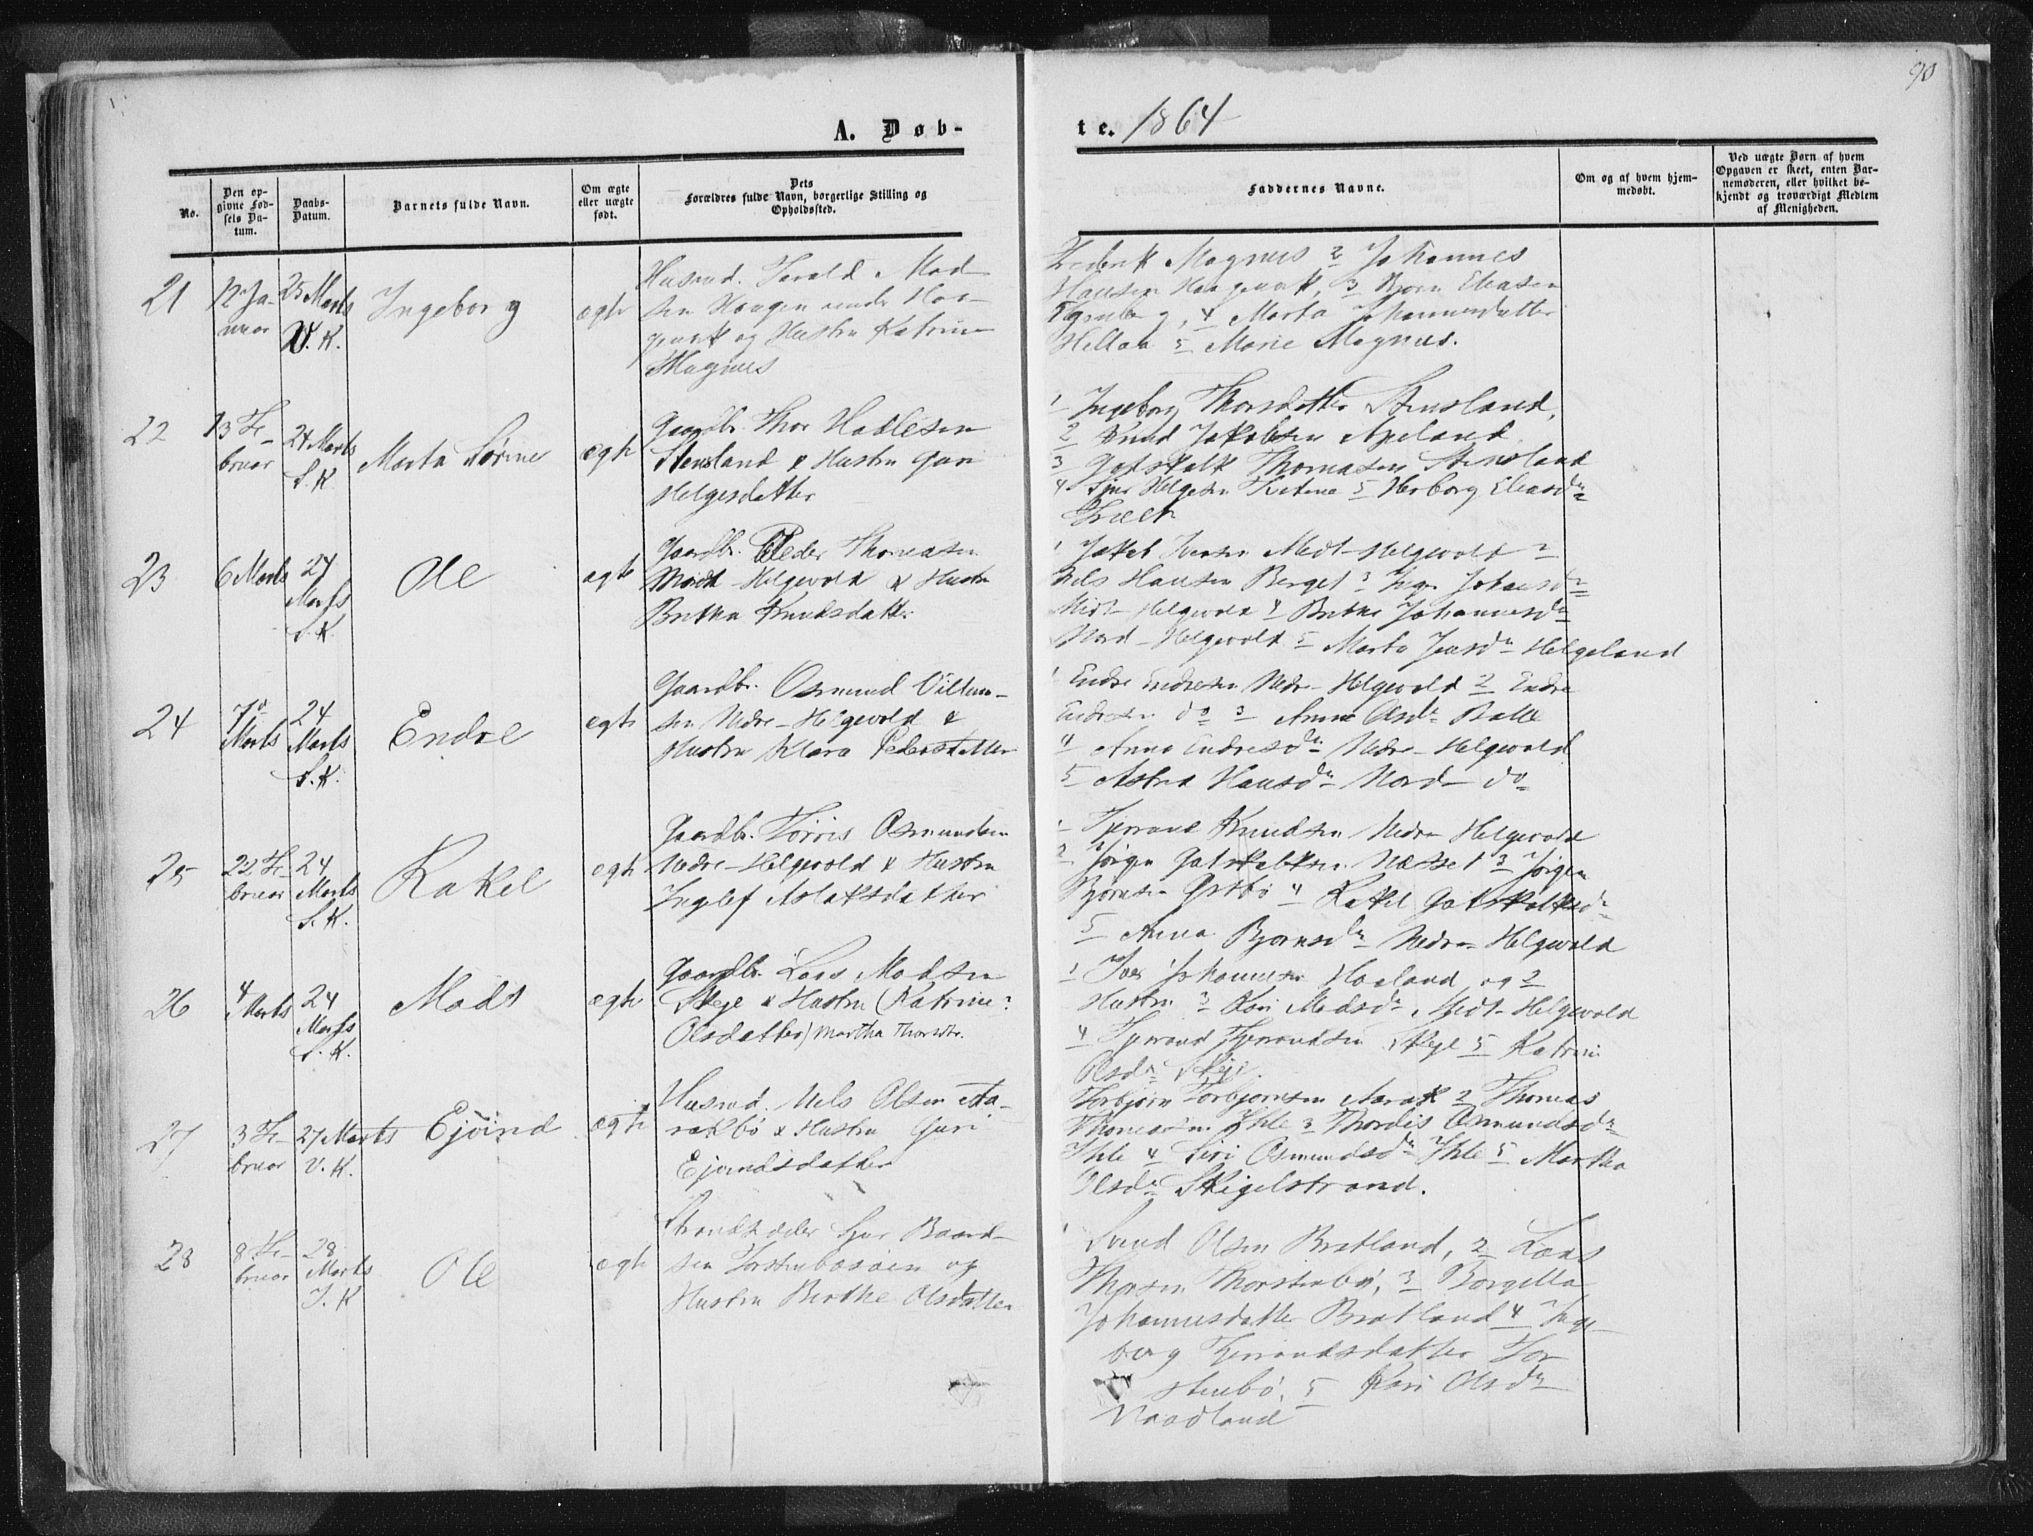 90
A. Døb-
te. 1864
No.
Den op-
givne Fød-
sels Da-
tum.
Daabs-
Datum.
Barnets fulde Navn.
Om ægte
eller uægte
født.
Dets
Forældres fulde Navn, borgerlige Stilling og
Opholdssted.
Faddernes Navne.
Om og af hvem hjem-
medøbt.
Ved uægte Børn af hvem
Opgaven er skeet, enten Bar-
nemoderen, eller hvilket be-
kjendt og troværdigt Medlem
af Menigheden.
21
12 Ja-
nuar
25 Marts
V. K.
Ingeborg
ægte
Husmd. Mad-
sen Haugen under
og Hustru Katrine
Magnus
Frederik Magnus 2 Johannes
Hansen 3 Bjørn Eliasen
4 Marta Johannesdatter
5 Marie Magnus.
22
13 Fe-
bruar
24 Marts
S. K
Marta Sørine
ægte
Gaardbr. Thor Hadlesen
Stensland & Hustru Guri
Helgesdatter
1 Ingeborg Thorsdatter Stensland,
2 Knud Jakobsen Apeland.
3 Gotskalk Thomasen Stensland
4 Helgesen 5 Herborg Eliasdr
23
6 Marts
24
Marts
S. K.
Ole
ægte
Gaardbr. Peder Thomasen
Midt-Helgevold & Hustru
Britha Knudsdatt.
1 Jakob Iversen Midt-Helgevold 2
Nils Hansen Berget 3 Johansdr
Midt-Helgevold 4 Britha Johannesdr
Nord-Helgevold 5 Marta Jensdr Helgeland
24
7d
Marts
24
Marts
S. K.
Endre
ægte
Gaardbr. Osmund
sen Nedre-Helgevold &
Hustru Klara Pedersdatter
1 Endre Endresen Nedre-Helgevold 2 Endre
Endresen do 3 Anna Olsdr
4 Anna Endresdr Nedre-Helgevold
5 Astrid Hansdr Nord do
25
22 Fe-
bruar
24
Marts
S. K.
Rakel
ægte
Gaardbr. Tørris Osmundsen
Nedre-Helgevold & Hustru
Ingelef Aslaksdatter
1 Tjerrand Knudsen Nedre Helgevold
2 Jørgen Gotskalksen Næsset 3 Jørgen
Bjørnsen Østbø 4 Rakel Gotskalksdr
5 Anna Bjørnsdr Nedre-Helgevold
26
4
Marts
24
Marts
S. K.
Mads
ægte
Gaardbr. Lars Madsen
Skeje & Hustru (Katrine?
Olsdatter) Martha Thorsdtr.
1 Iver Johannesen Haaland og 2
Hustru 3 Kari Madsdr Midt-Helgevold
4 Tjerrand Tjerrandsen Skeje 5 Katrine
Olsdr Skeje.
27
3 Fe-
bruar
27 Marts
V. K.
Ejvind
ægte
Husmd. Nils Olsen Aa-
rakbø & Hustru Guri
Ejvindsdatter
Torbjørn Torbjørnsen Aarak 2 Thomas
Thomasen Ihle 3 Thordis Osmundsdr
Ihle 4 Siri Osmundsdr Ihle 5 Martha
Olsdr Skigelstrand.
28
8 Fe-
bruar
28
Marts
J. K
Ole
ægte
Strandsidder Baard-
sen og
Hustru Berthe Olsdatter
1 Svend Olsen Bratland, 2 Lars
Thorsen Thorstenbø, 3 Borgilla
Johannesdatter Bratland 4 Inge-
borg Tjerrandsdatter Tor-
stenbø, 5 Kari Olsdr
Vaadland